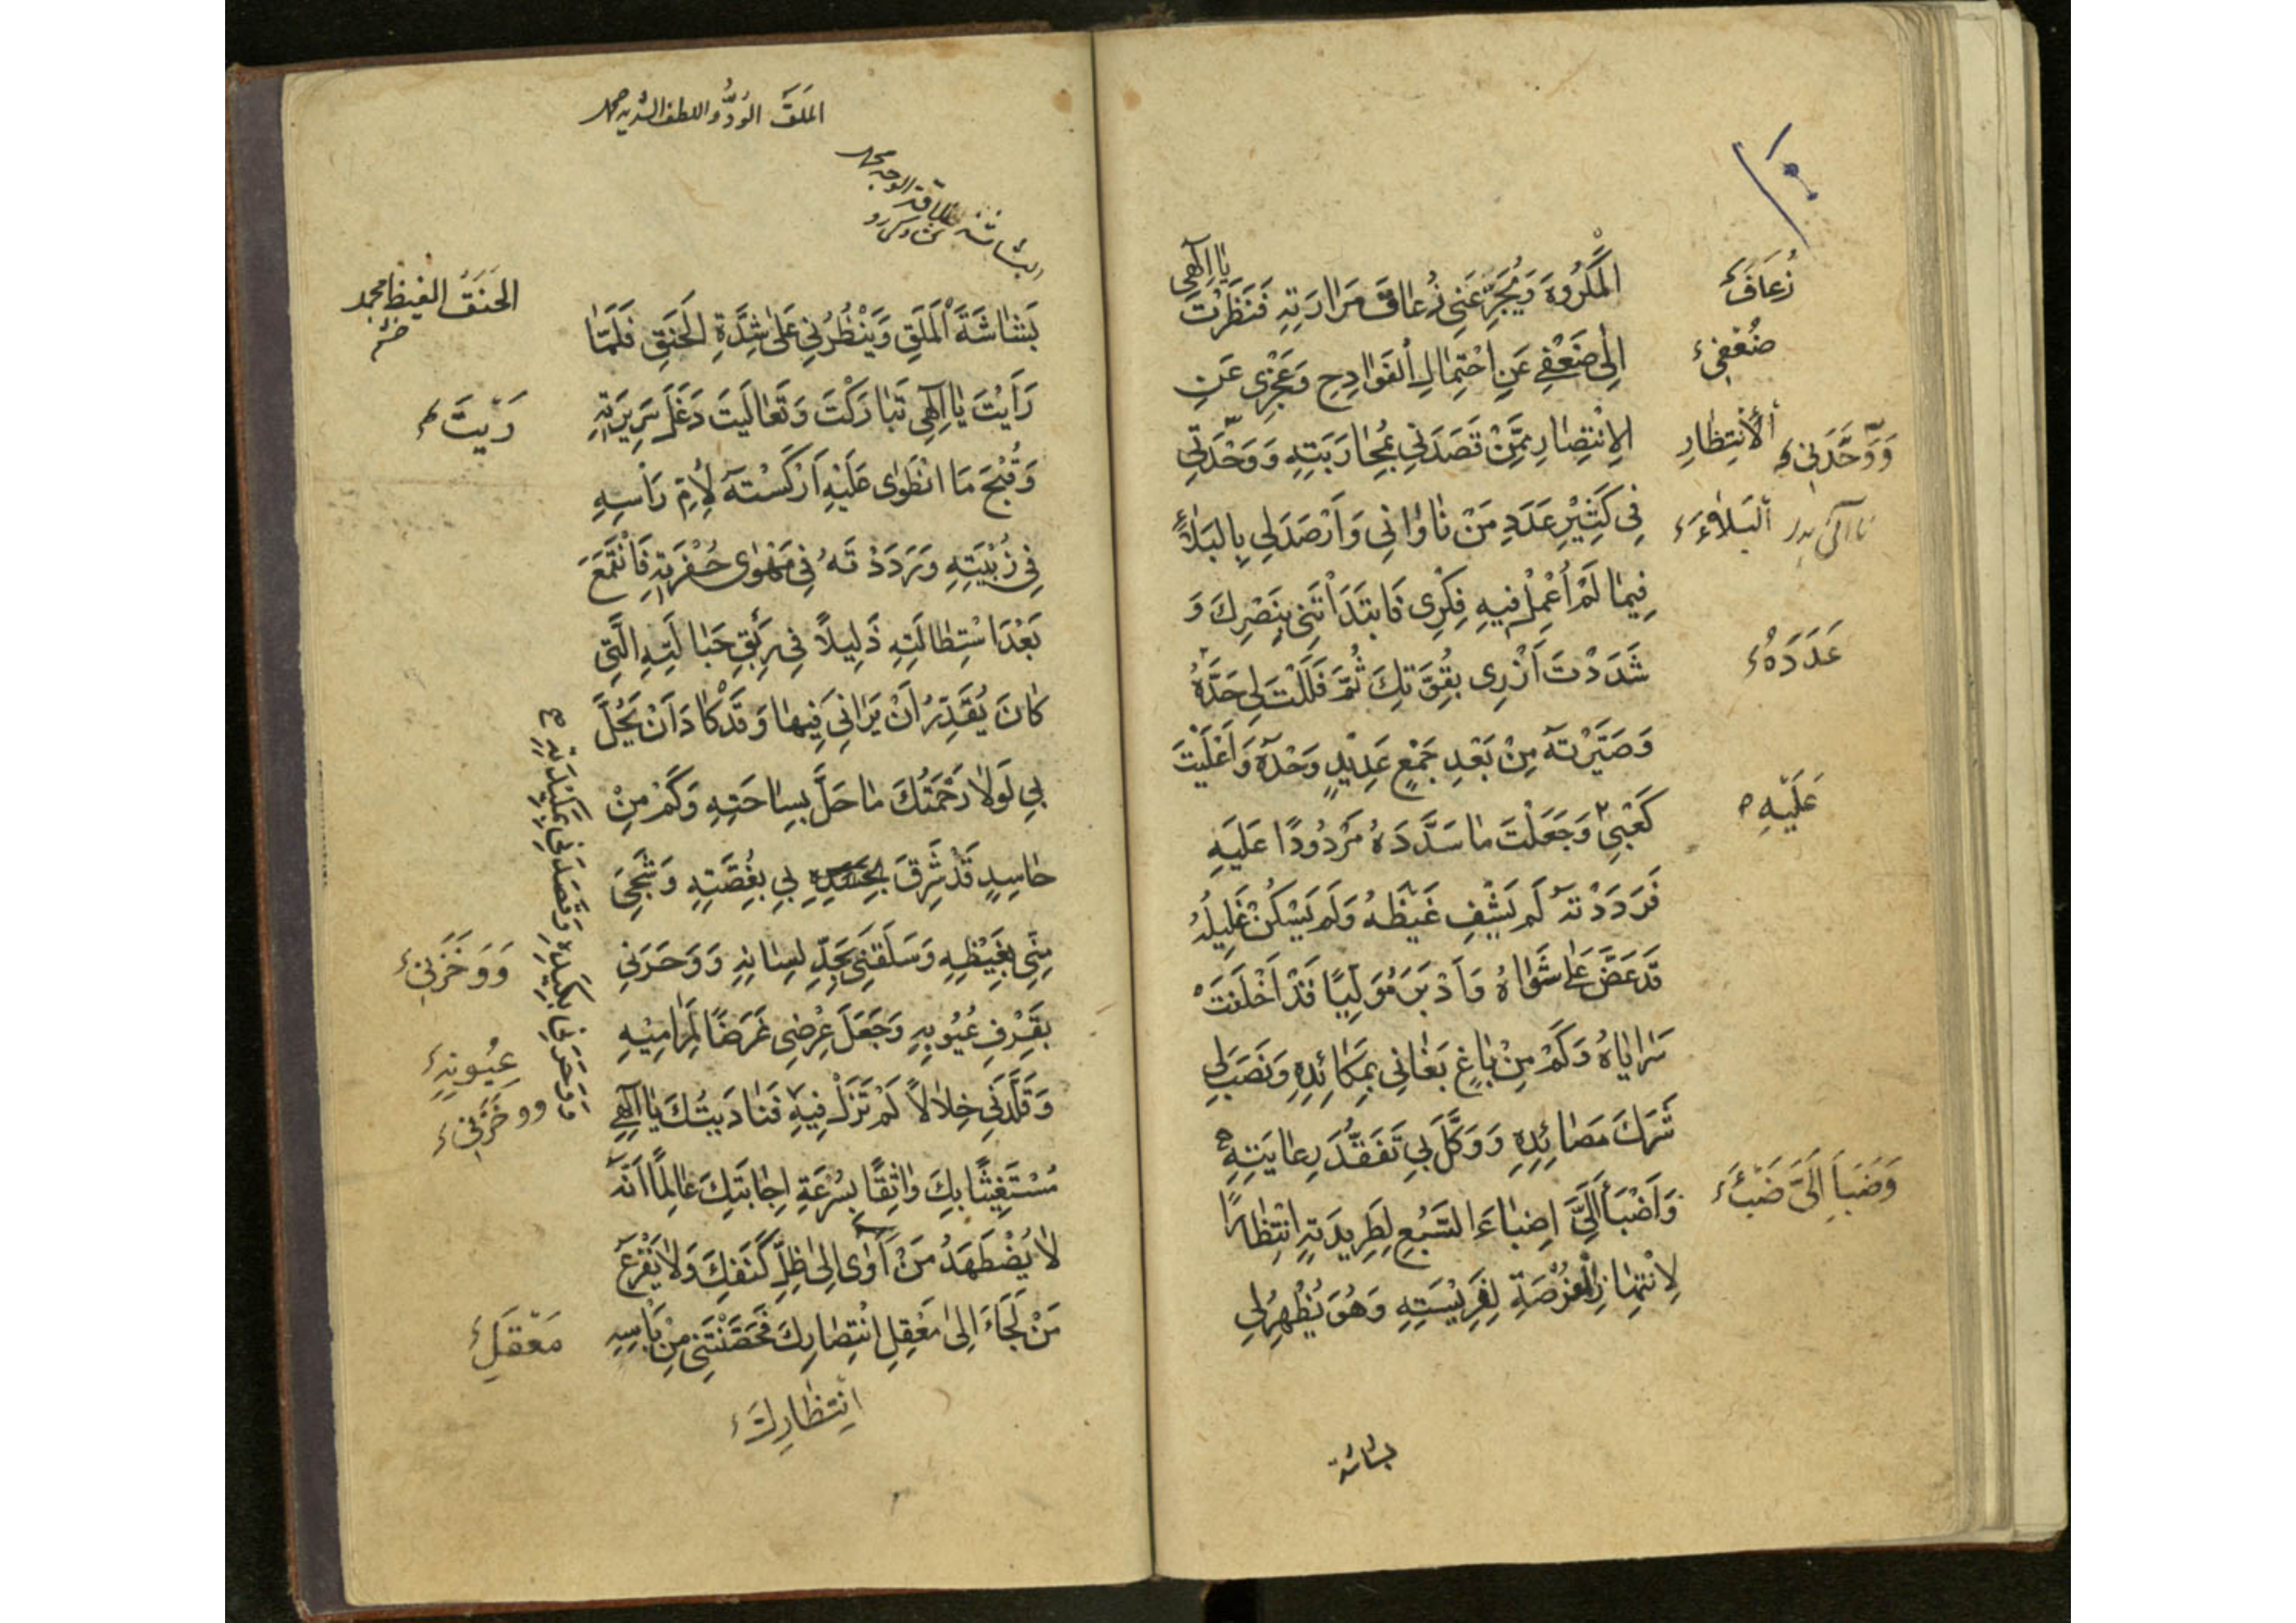 يَا إِلٰهِي
الْمَكْرُوهَ وَيُجَرِّعَنِي زُعَاقَ مَرَارَتِهِ فَنَظَرْتَ
إِلَى ضَعْفِي عَنِ احْتِمَالِ الْفَوَادِحِ وَعَجْزِي عَنِ
الْاِنْتِصَارِ مِمَّنْ قَصَدَنِي بِمُحَارَبَتِهِ وَوَحْدَتِي
فِي كَثِيْرِ عَدَدِ مَنْ نَاوَانِي وَأَرْصَدَ لِي بِالْبَلَاءِ
فِيمَا لَمْ أُعْمِلْ فِيهِ فِكْرِي فَابْتَدَأْتَنِي بِنَصْرِكَ وَ
شَدَدْتَ أَزْرِي بِقُوَّتِكَ ثُمَّ فَلَلْتَ لِي حَدَّهُ
وَصَيَّرْتَهُ مِنْ بَعْدِ جَمْعٍ عَدِيْدٍ وَحْدَهُ وَأَعْلَيْتَ
كَعْبِي وَجَعَلْتَ مَا سَدَّدَهُ مَرْدُودًا عَلَيْهِ
فَرَدَدْتَهُ لَمْ يَشْفِ غَيْظَهُ وَلَمْ يَسْكُنْ غَلِيلُهُ
قَدْ عَضَّ عَلَى شَوَاهُ وَأَدْبَرَ مُوَلِّيًا قَدْ أَخْلَفَتْ
سَرَايَاهُ وَكَمْ مِنْ بَاغٍ بَغَانِي بِمَكَائِدِهِ وَنَصَبَ لِي
شَرَكَ مَصَائِدِهِ وَوَكَّلَ بِي تَفَقُّدَ رِعَايَتِهِ
وَأَضْبَأَ إِلَيَّ إِضْبَاءَ السَّبُعِ لِطَرِيدَتِهِ انْتِظَارًا
لِانْتِهَازِ الْفُرْصَةِ لِفَرِيْسَتِهِ وَهُوَ يُظْهِرُ لِي
بشاشة
زُعَافَ
ضُعْفِي
الْأَنْتِظَارِ
وَوَحَّدَنِي
الْبَلَاءَ
عَدَدَهُ
عَلَيْهِ
وَضَبَأَ إِلَيَّ ضَبْءَ
المَلَقَ الوُدُّ واللطف الشديد صحاح
البشاشة طلاقة الوجه
الحَنَقُ الغيظ
بَشَاشَةَ الْمَلَقِ وَيَنْظُرُنِي عَلَى شِدَّةِ الْحَنَقِ فَلَمَّا
رَأَيْتَ يَا إِلٰهِي تَبَارَكْتَ وَتَعَالَيْتَ دَغَلَ سَرِيرَتِهِ
وَقُبْحَ مَا انْطَوَى عَلَيْهِ أَرْكَسْتَهُ لِأُمِّ رَأْسِهِ
فِي زُبْيَتِهِ وَرَدَدْتَهُ فِي مَهْوَى حُفْرَتِهِ فَانْقَمَعَ
بَعْدَ اسْتِطَالَتِهِ ذَلِيلًا فِي رِبَقِ حَبَالَتِهِ الَّتِي
كَانَ يُقَدِّرُ أَنْ يَرَانِي فِيهَا وَقَدْ كَادَ أَنْ يَحُلَّ
بِي لَوْلَا رَحْمَتُكَ مَا حَلَّ بِسَاحَتِهِ وَكَمْ مِنْ
حَاسِدٍ قَدْ شَرِقَ بِي بِغُصَّتِهِ وَشَجِيَ
مِنِّي بِغَيْظِهِ وَسَلَقَنِي بِحَدِّ لِسَانِهِ وَوَحَرَنِي
بِقَرْفِ عُيُوبِهِ وَجَعَلَ عِرْضِي غَرَضًا لِمَرَامِيْهِ
وَقَلَّدَنِي خِلَالًا لَمْ تَزَلْ فِيهِ فَنَادَيْتُكَ يَا إِلٰهِي
مُسْتَغِيثًا بِكَ وَاثِقًا بِسُرْعَةِ إِجَابَتِكَ عَالِمًا أَنَّهُ
لَا يُضْطَهَدُ مَنْ أَوَى إِلَى ظِلِّ كَنَفِكَ وَلَا يَفْزَعُ
مَنْ لَجَأَ إِلَى مَعْقِلِ انْتِصَارِكَ فَحَصَّنْتَنِي مِنْ بَأْسِهِ
انْتِظَارِكَ
رَيْتَ
وَوَخَزَنِي
عُيُونِهِ
ووخَزَنِي
وَوَحَرَنِي بِكَيْدِهِ وَقَصَدَنِي بِمَكِيدَتِهِ
مَعْقَلِ